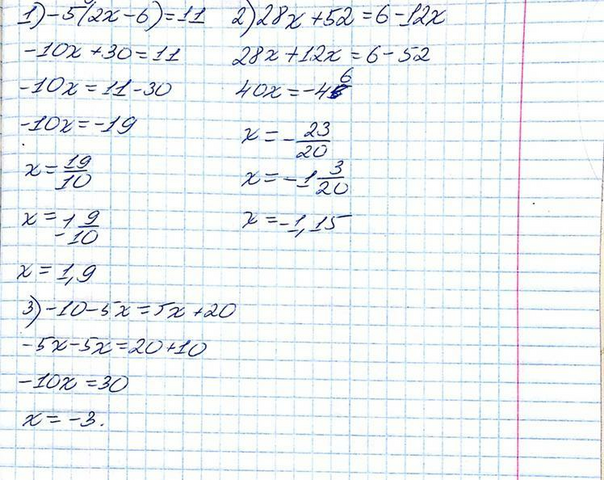 1) -5(2x-6)=11
-10x+30=11
-10x=11-30
-10x=-19
x=19/10
x=1 9/10
x=1,9
2) 28x+52=6-12x
28x+12x=6-52
40x=-46
x=-23/20
x=-1 3/20
x=-1,15
3) -10-5x=5x+20
-5x-5x=20+10
-10x=30
x=-3.